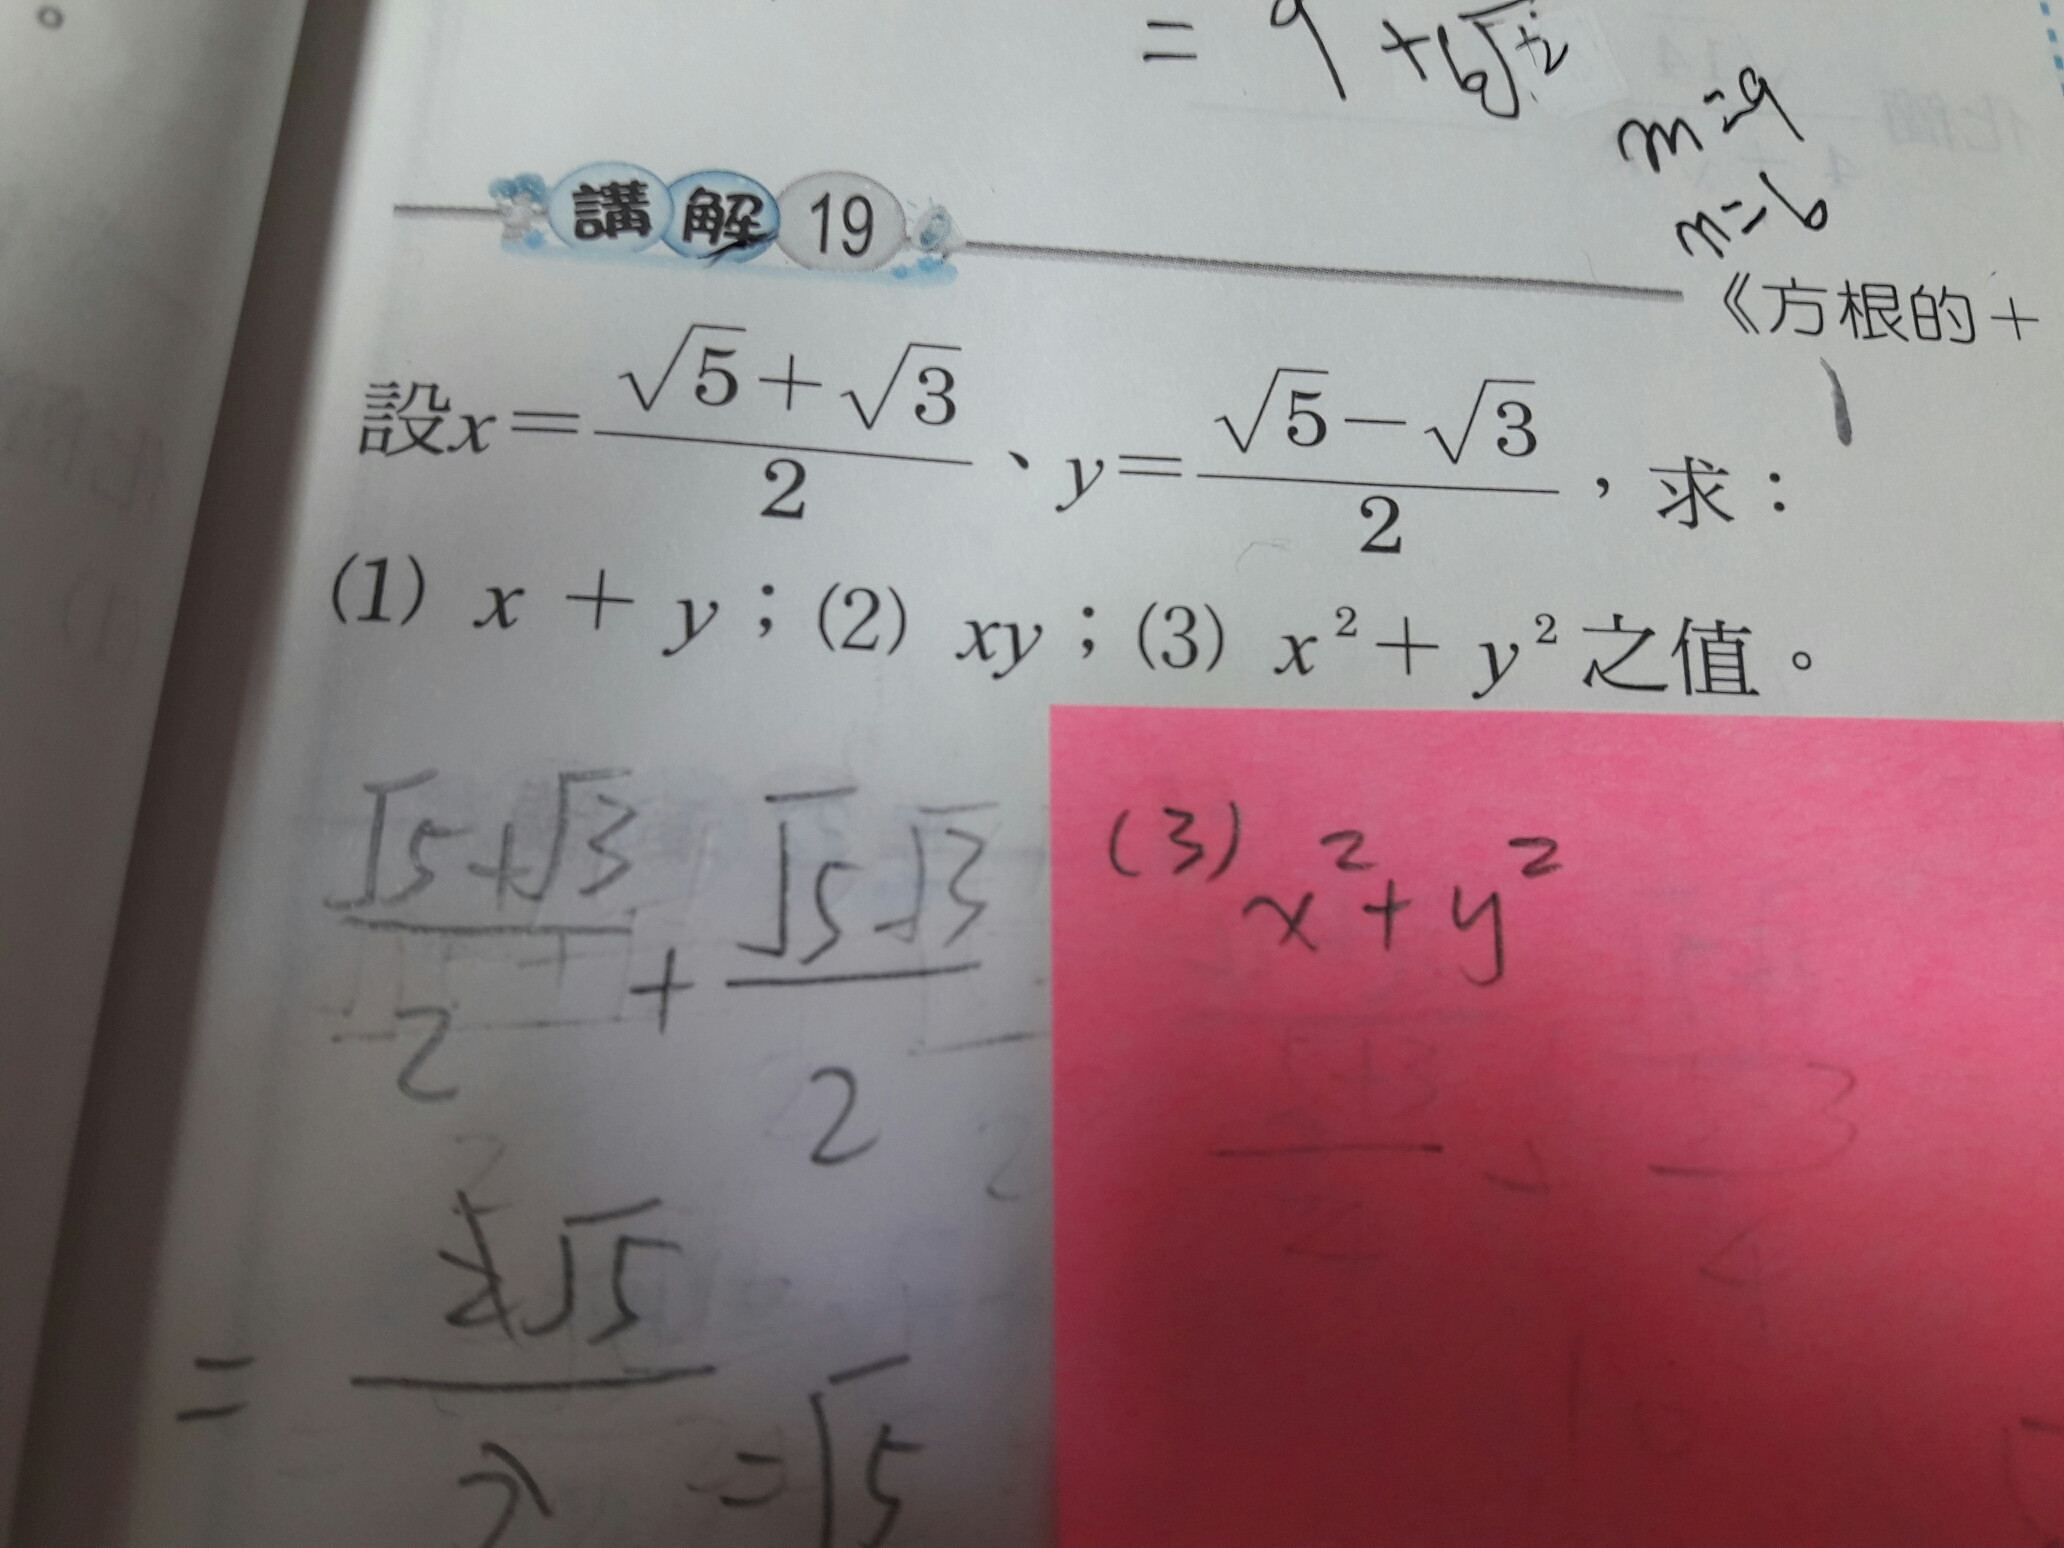 = 9 + 6√2
m=9
n=6
講解 19
《方根的+
設x=(√5+√3)/2、y=(√5-√3)/2，求：
(1) x + y；(2) xy；(3) x²+ y²之值。
(√5+√3)/2 + (√5-√3)/2
= 2√5/2 =√5
(3) x²+y²